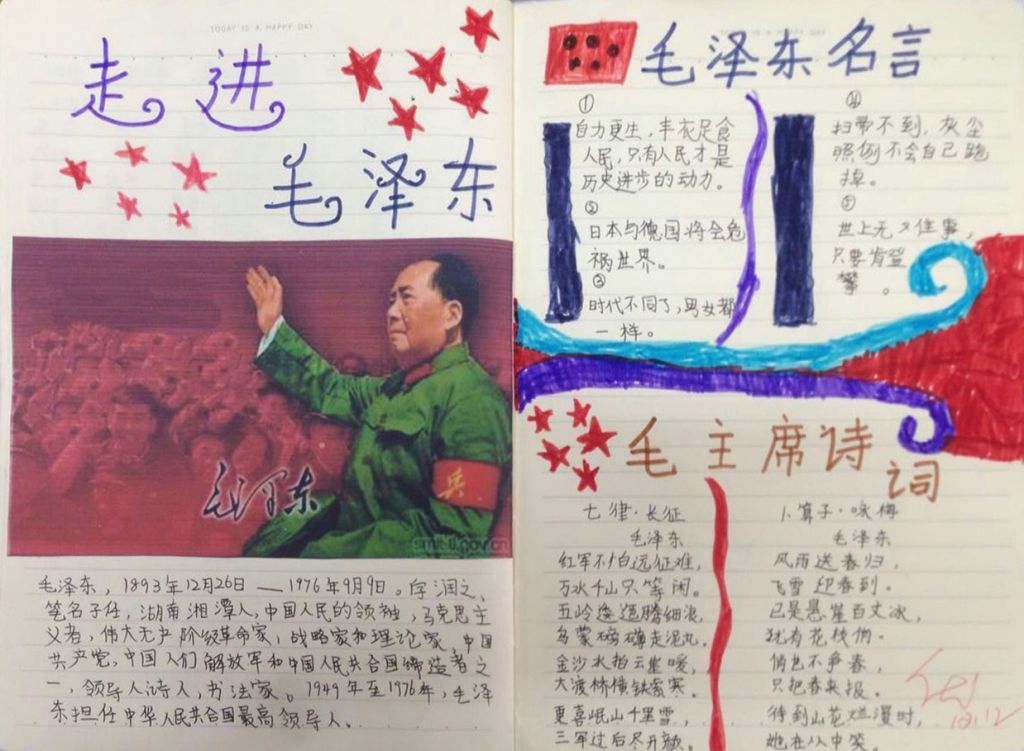 TODAY IS A HAPPY DAY
走进
毛泽东
毛泽东
兵
毛泽东，1893年12月26日——1976年9月9日。字润之，
笔名子任，湖南湘潭人，中国人民的领袖，马克思主
义者，伟大无产阶级革命家，战略家和理论家，中国
共产党，中国人们解放军和中国人民共合国缔造者之
一，领导人诗人，书法家。1949年至1976年，毛泽
东担任中华人民共合国最高领导人。
毛泽东名言
①
自力更生，丰衣足食
人民，只有人民才是
历史进步的动力。
②
日本与德国将会危
祸世界。
③
时代不同了，男女都
一样。
④
扫帚不到，灰尘
照例不会自己跑
掉。
⑤
世上无 事，
只要肯登
攀。
毛主席诗
词
七律·长征
毛泽东
红军不怕远征难，
万水千山只等闲。
五岭逶迤腾细浪，
乌蒙磅礴走泥丸。
金沙水拍云崖暖，
大渡桥横铁索寒。
更喜岷山千里雪，
三军过后尽开颜。
卜算子·咏梅
毛泽东
风雨送春归，
飞雪迎春到。
已是悬崖百丈冰，
犹有花枝俏。
俏也不争春，
只把春来报。
待到山花烂漫时，
她在丛中笑。
12.12